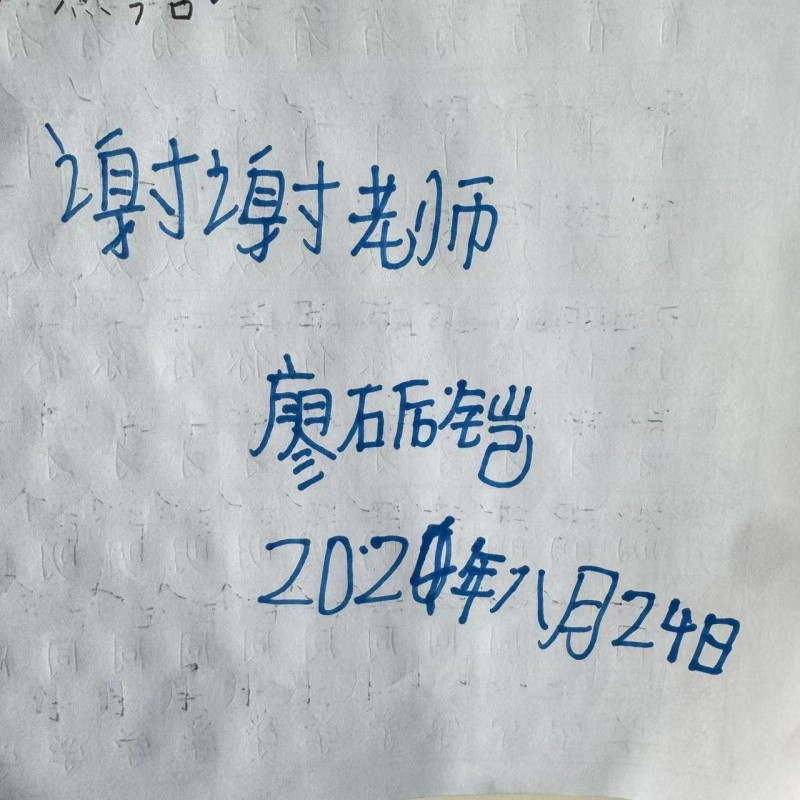 谢谢老师
廖石后铠
2024年八月24日